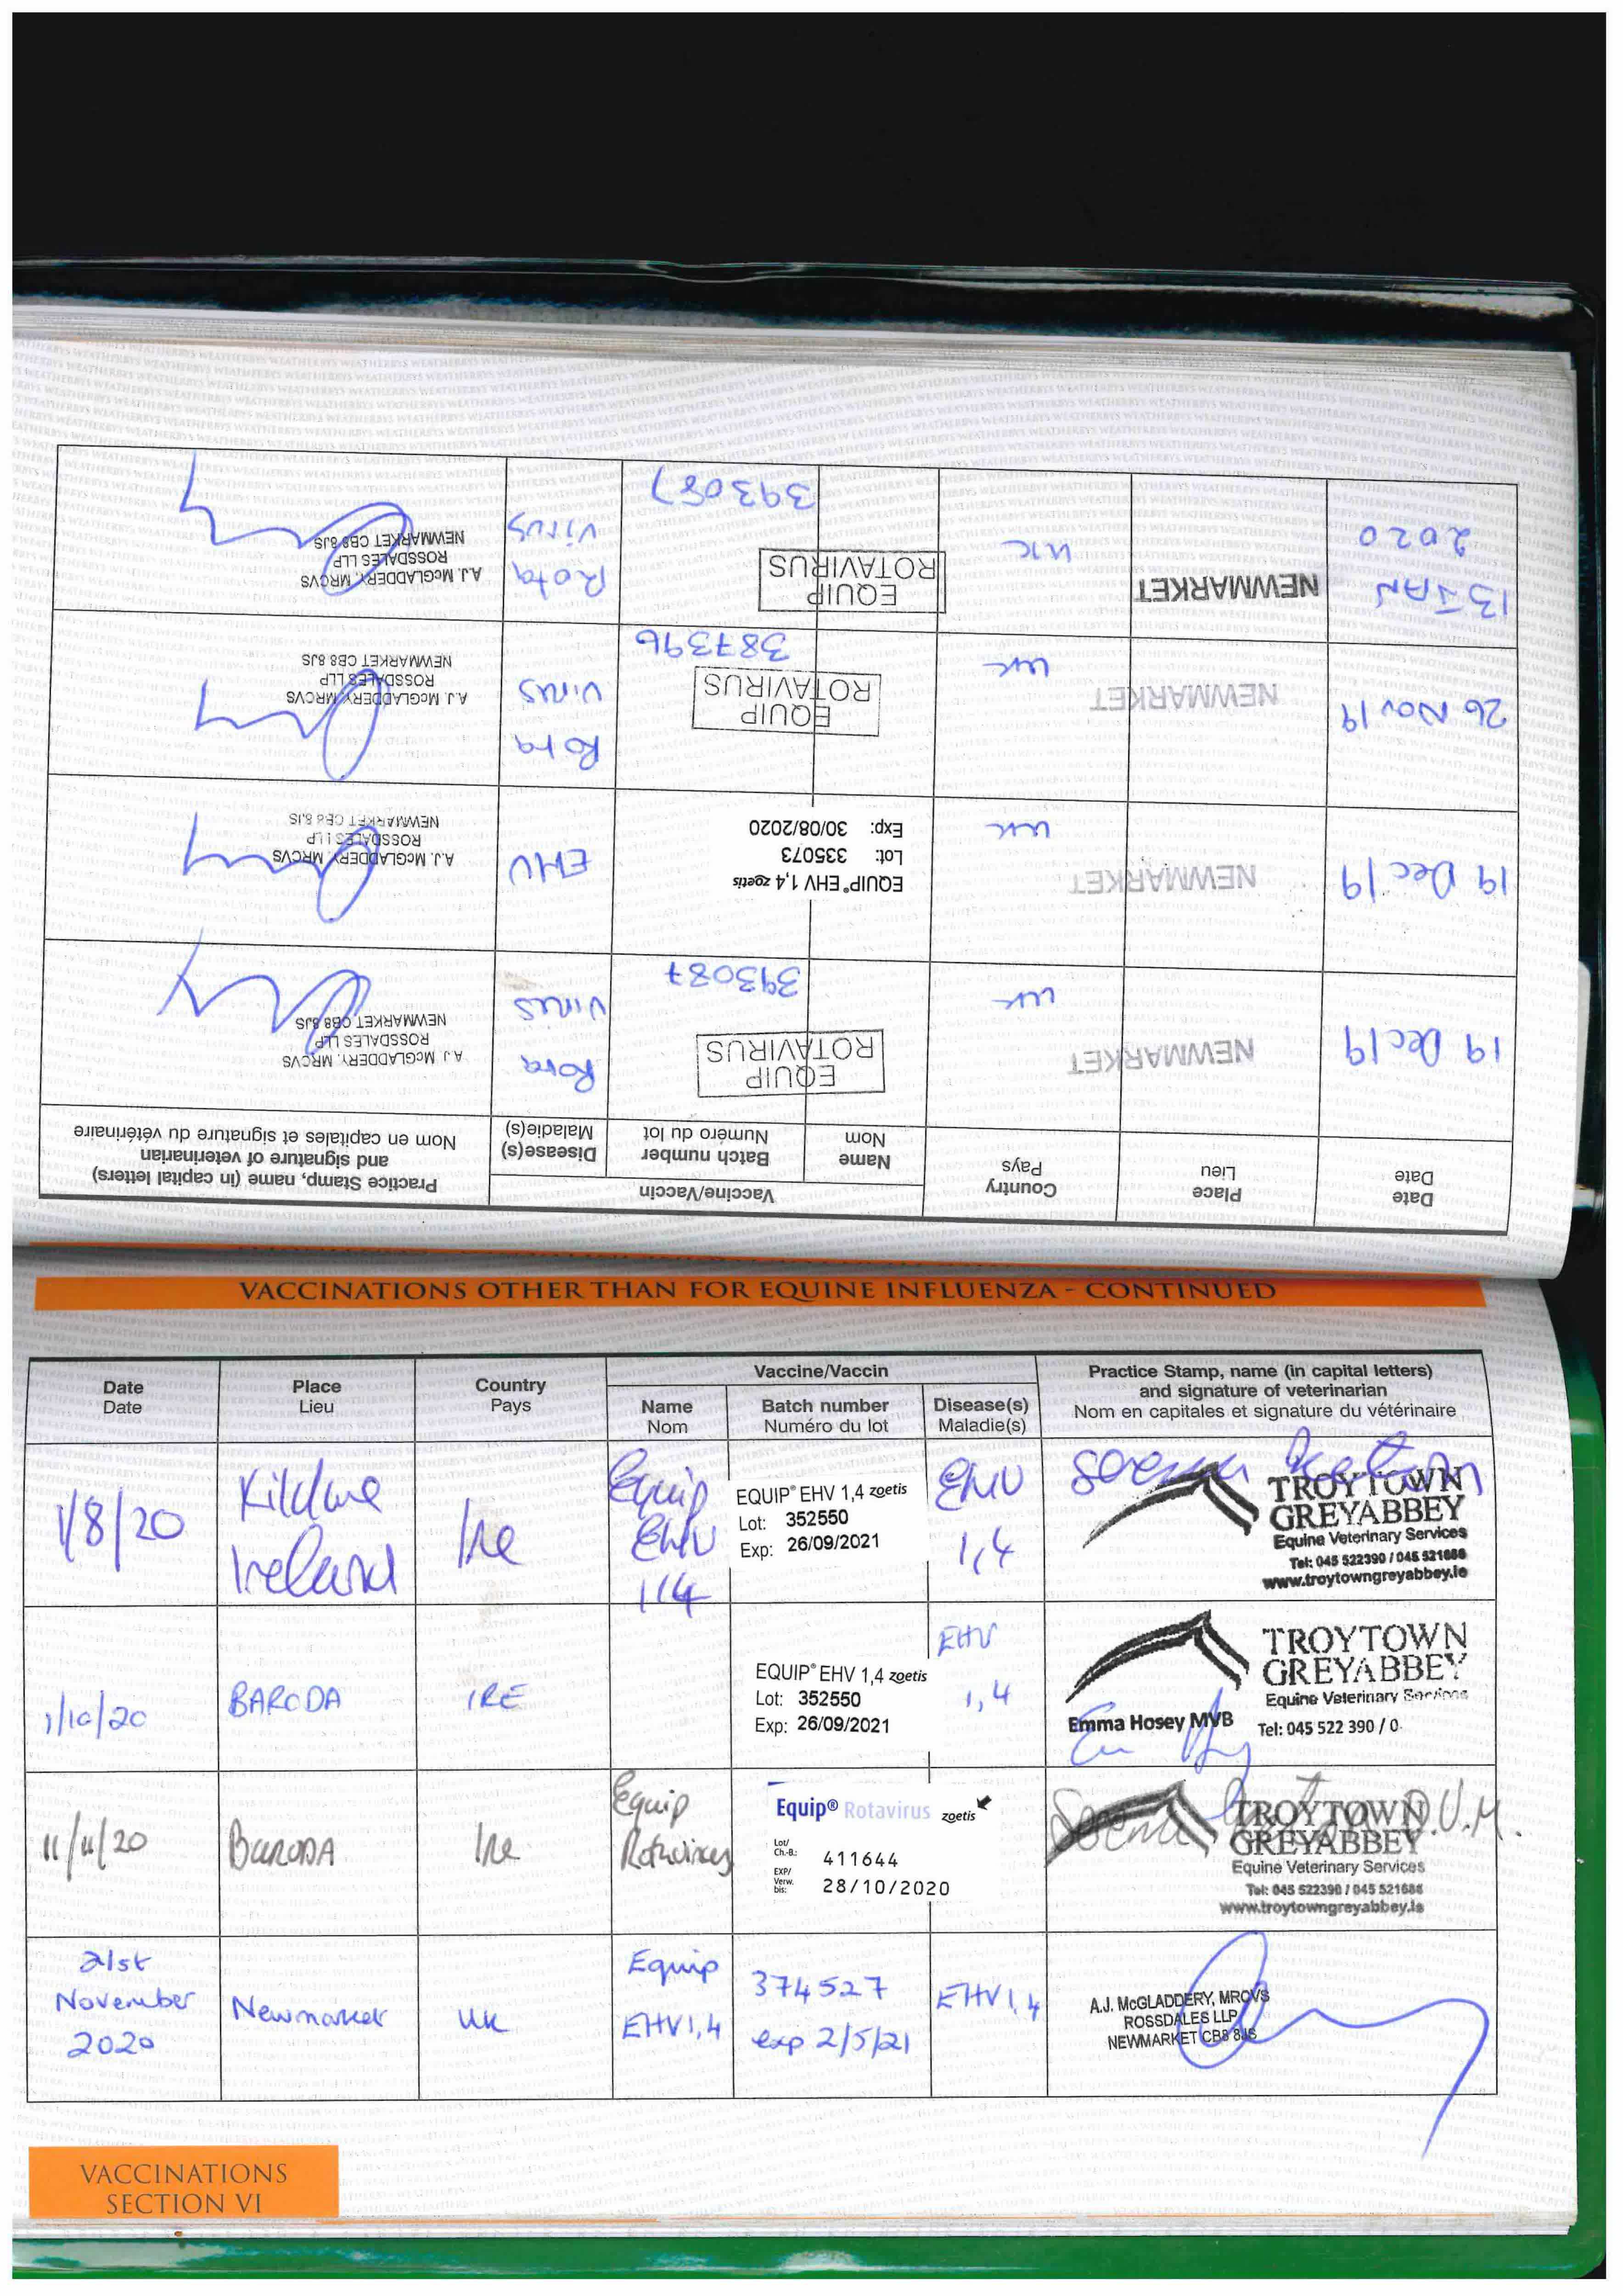 Date Place Country Vaccine/Vaccin Practice Stamp, name (in capital letters)
Date Lieu Pays Name Batch number Disease(s) and signature of veterinarian
Nom Numéro du lot Maladie(s) Nom en capitales et signature du vétérinaire
19 Dec 19 NEWMARKET UK EQUIP ROTAVIRUS 393087 Rota Virus A J McGLADDERY. MRCVS
ROSSDALES LLP
NEWMARKET CB8 8JS
19 Dec 19 NEWMARKET UK EQUIP® EHV 1,4 zoetis EHV A.J. McGLADDERY MRCVS
Lot: 335073 ROSSDALES LLP
Exp: 30/08/2020 NEWMARKET CB8 8JS
26 Nov 19 NEWMARKET UK EQUIP ROTAVIRUS 387396 Rota Virus A.J. McGLADDERY MRCVS
ROSSDALES LLP
NEWMARKET CB8 8JS
13 JAN 2020 NEWMARKET UK EQUIP ROTAVIRUS 393087 Rota Virus A.J. McGLADDERY. MRCVS
ROSSDALES LLP
NEWMARKET CB8 8JS
VACCINATIONS OTHER THAN FOR EQUINE INFLUENZA - CONTINUED
Date Place Country Vaccine/Vaccin Practice Stamp, name (in capital letters)
Date Lieu Pays Name Batch number Disease(s) and signature of veterinarian
Nom Numéro du lot Maladie(s) Nom en capitales et signature du vétérinaire
1/8/20 Kildare Ireland Ire Equip EHV 1,4 EQUIP® EHV 1,4 zoetis EHV 1,4 TROYTOWN
Lot: 352550 GREYABBEY
Exp: 26/09/2021 Equine Veterinary Services
Tel: 045 522390 / 045 521686
www.troytowngreyabbey.ie
1/10/20 BARODA IRE EQUIP® EHV 1,4 zoetis EHV 1,4 TROYTOWN
Lot: 352550 GREYABBEY
Exp: 26/09/2021 Equine Veterinary Services
Emma Hosey MVB Tel: 045 522 390 / 0
11/11/20 BARODA Ire Equip Rotavirus Equip® Rotavirus zoetis TROYTOWN D.V.M.
Lot/ Ch.-B.: 411644 GREYABBEY
EXP/ Verw. bis: 28/10/2020 Equine Veterinary Services
Tel: 045 522390 / 045 521686
www.troytowngreyabbey.ie
21st November 2020 Newmarket UK Equip EHV1,4 374527 exp 2/5/21 EHV1,4 A.J. McGLADDERY, MRCVS
ROSSDALES LLP
NEWMARKET CB8 8JS
VACCINATIONS
SECTION VI